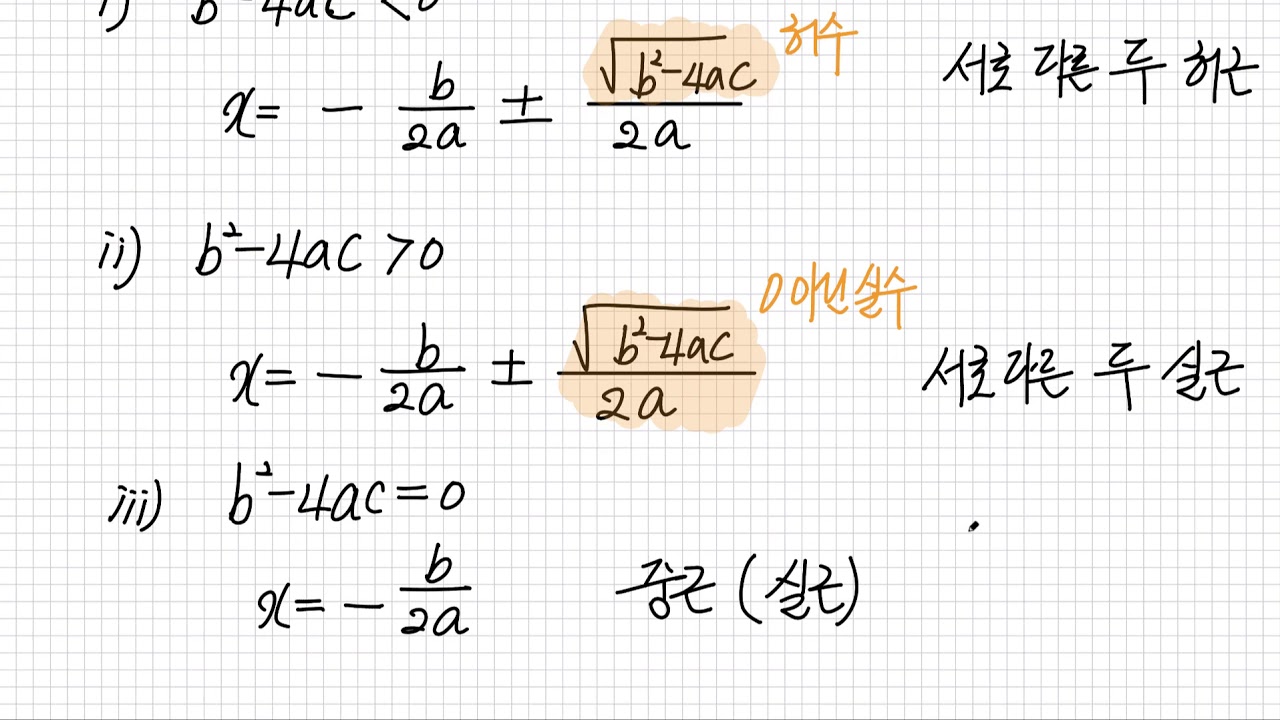 i) b²-4ac <0
x= - b/2a ± √b²-4ac/2a 허수 서로 다른 두 허근
ii) b²-4ac >0
x= - b/2a ± √b²-4ac/2a 0 아닌 실수 서로 다른 두 실근
iii) b²-4ac=0
x= - b/2a 중근 (실근)